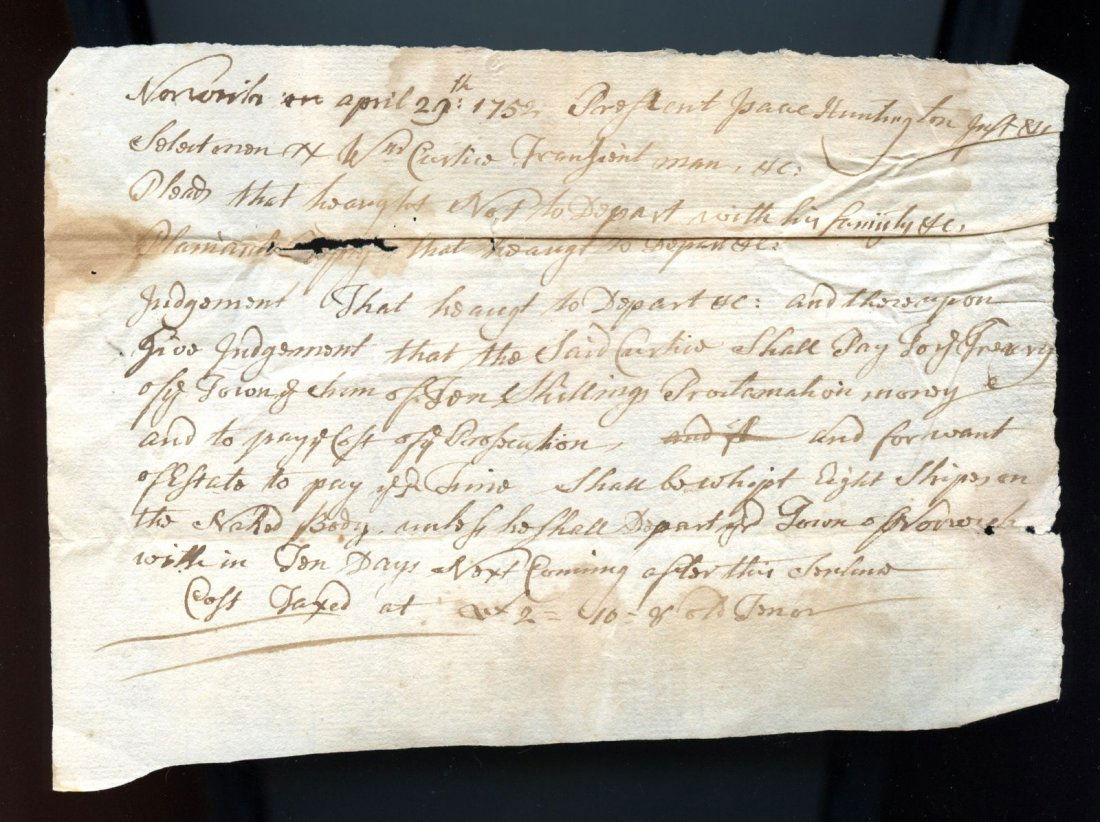 Norwich on april 29th: 1752 Present Isaac Huntington Just &c
Select men & Wm Curtice Transient man, &c:
Pleads that he aught Not to Depart with his family &c,
that he augt to Depart &c:
Judgement That he augt to Depart &c: and thereupon
Give Judgement that the Said Curtice Shall Pay To ye Treary
of ye Town ye Sum of Ten Shillings Proclamation money
and to pay ye Cost of ye Prosecution, and for want
of Estate to pay sd Fine Shall be whipt Eight Stripes on
the Naked Body, unless he shall Depart ye sd Town of Norwich
with in Ten Days Next Coming after this Sentence
Cost Taxed at 2 = 10 = 8 old Tenor